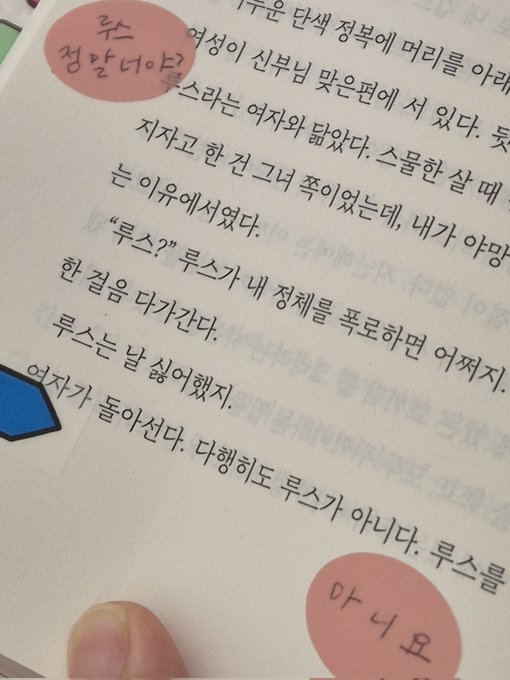 루스
정말 너야?
두운 단색 정복에 머리를 아래
여성이 신부님 맞은편에 서 있다. 뒷
루스라는 여자와 닮았다. 스물한 살 때
지자고 한 건 그녀 쪽이었는데, 내가 야망
는 이유에서였다.
“루스?” 루스가 내 정체를 폭로하면 어쩌지.
한 걸음 다가간다.
루스는 날 싫어했지.
여자가 돌아선다. 다행히도 루스가 아니다. 루스를
아니요